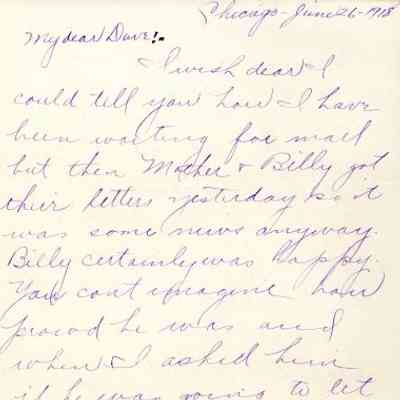 Chicago - June 26 - 1918
My dear Dave! -
I wish dear I
could tell you how I have
been waiting for mail
but then Mother + Billy got
their letters yesterday so it
was some news anyway.
Billy certainly was happy.
You cant imagine how
proud he was and
when I asked him
if he was going to let